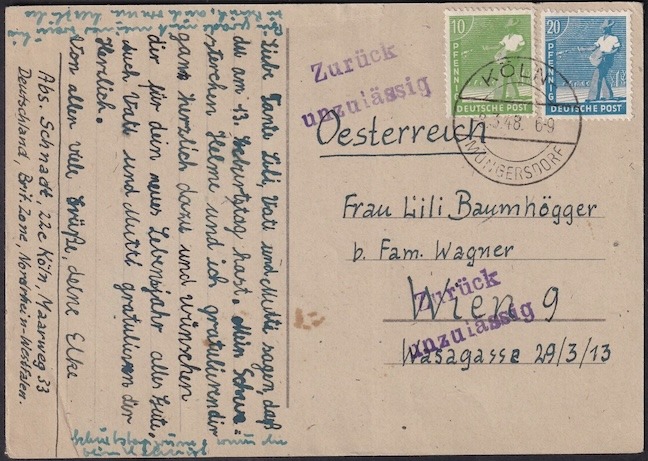 Liebe Tante Lili, Vati und Mutti sagen, daß
du am 13. Geburtstag hast. Mein Schwe-
sterchen Helme und ich gratulieren dir
ganz herzlich dazu und wünschen
dir für dein neues Lebensjahr alles Gute.
Auch Vati und Mutti gratulieren dir
Herzlich.
Von allen viel Grüße, deine Elke
Abs. Schnadt, 22c Köln, Maarweg 33
Deutschland, Brit. Zone, Nordrhein-Westfalen.
Zurück
unzulässig
10
PFENNIG
DEUTSCHE POST
20
PFENNIG
DEUTSCHE POST
KÖLN
3.48. 6-9
MÜNGERSDORF
Oesterreich
Frau Lili Baumhögger
b. Fam. Wagner
Wien 9
Wasagasse 29/3/13
Zurück
unzulässig